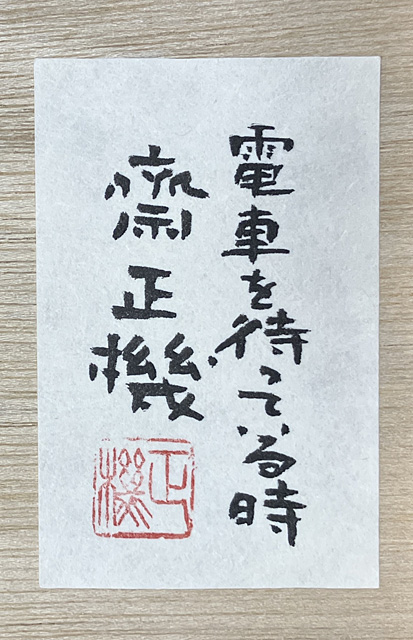 電車を待っている時
齋正機
正機